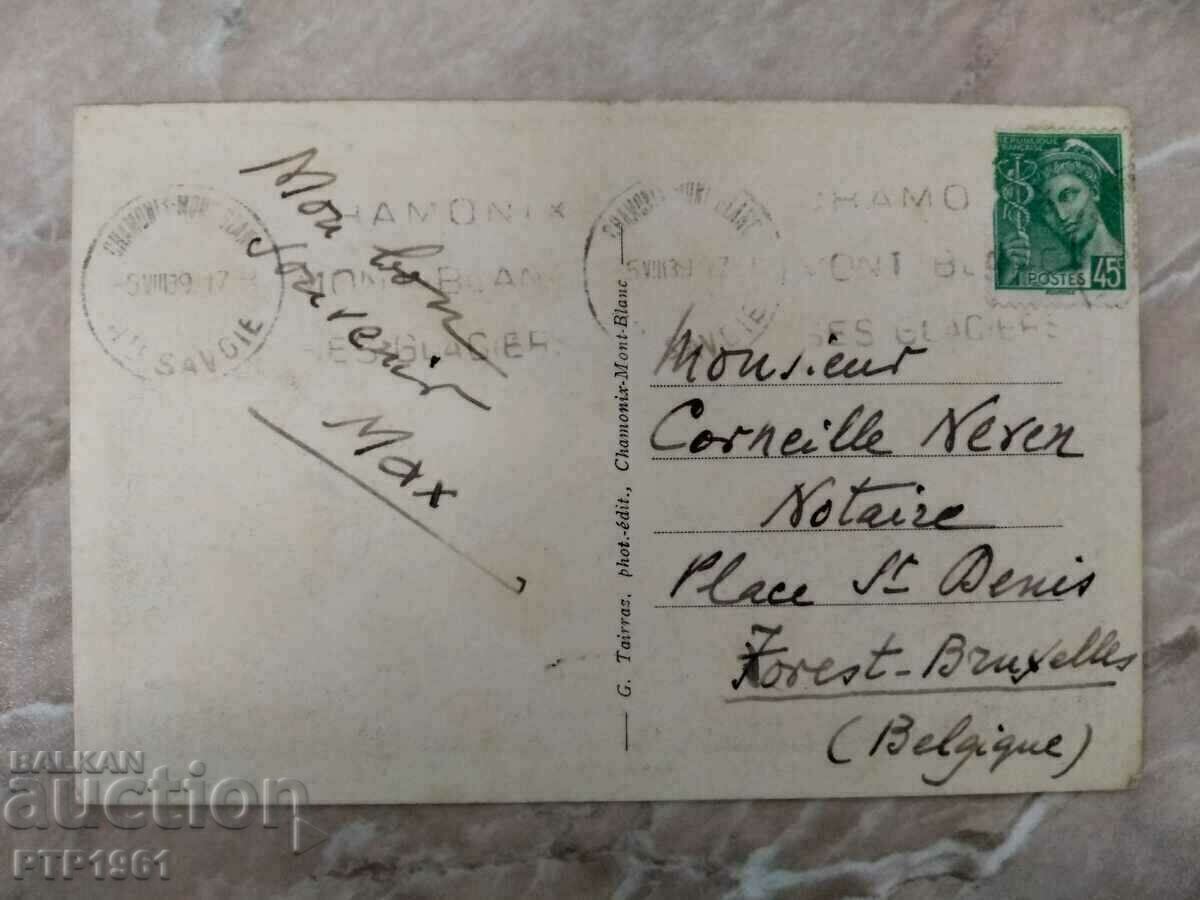 CHAMONIX-MONT-BLANC
5 VIII 39 17
HTE SAVOIE
CHAMONIX
MONT BLANC
SES GLACIERS
CHAMONIX-MONT-BLANC
5 VIII 39 17
SAVOIE
CHAMO
MONT BL
SES GLACIERS
RÉPUBLIQUE
FRANÇAISE
POSTES 45c
Mon bon
souvenir
Max
G. Tairraz, phot.-édit., Chamonix-Mont-Blanc
Monsieur
Corneille Neven
Notaire
Place St Denis
Forest-Bruxelles
(Belgique)
BALKAN
auction
PTP1961